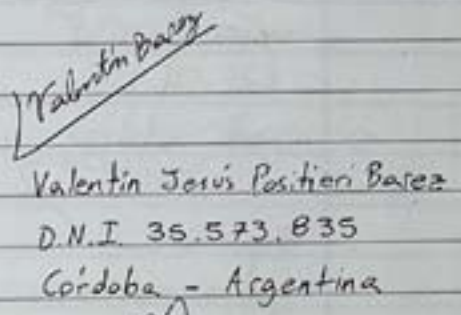 Valentín Barez
Valentín Jesús Positieri Barez
D.N.I. 35.573.835
Córdoba - Argentina